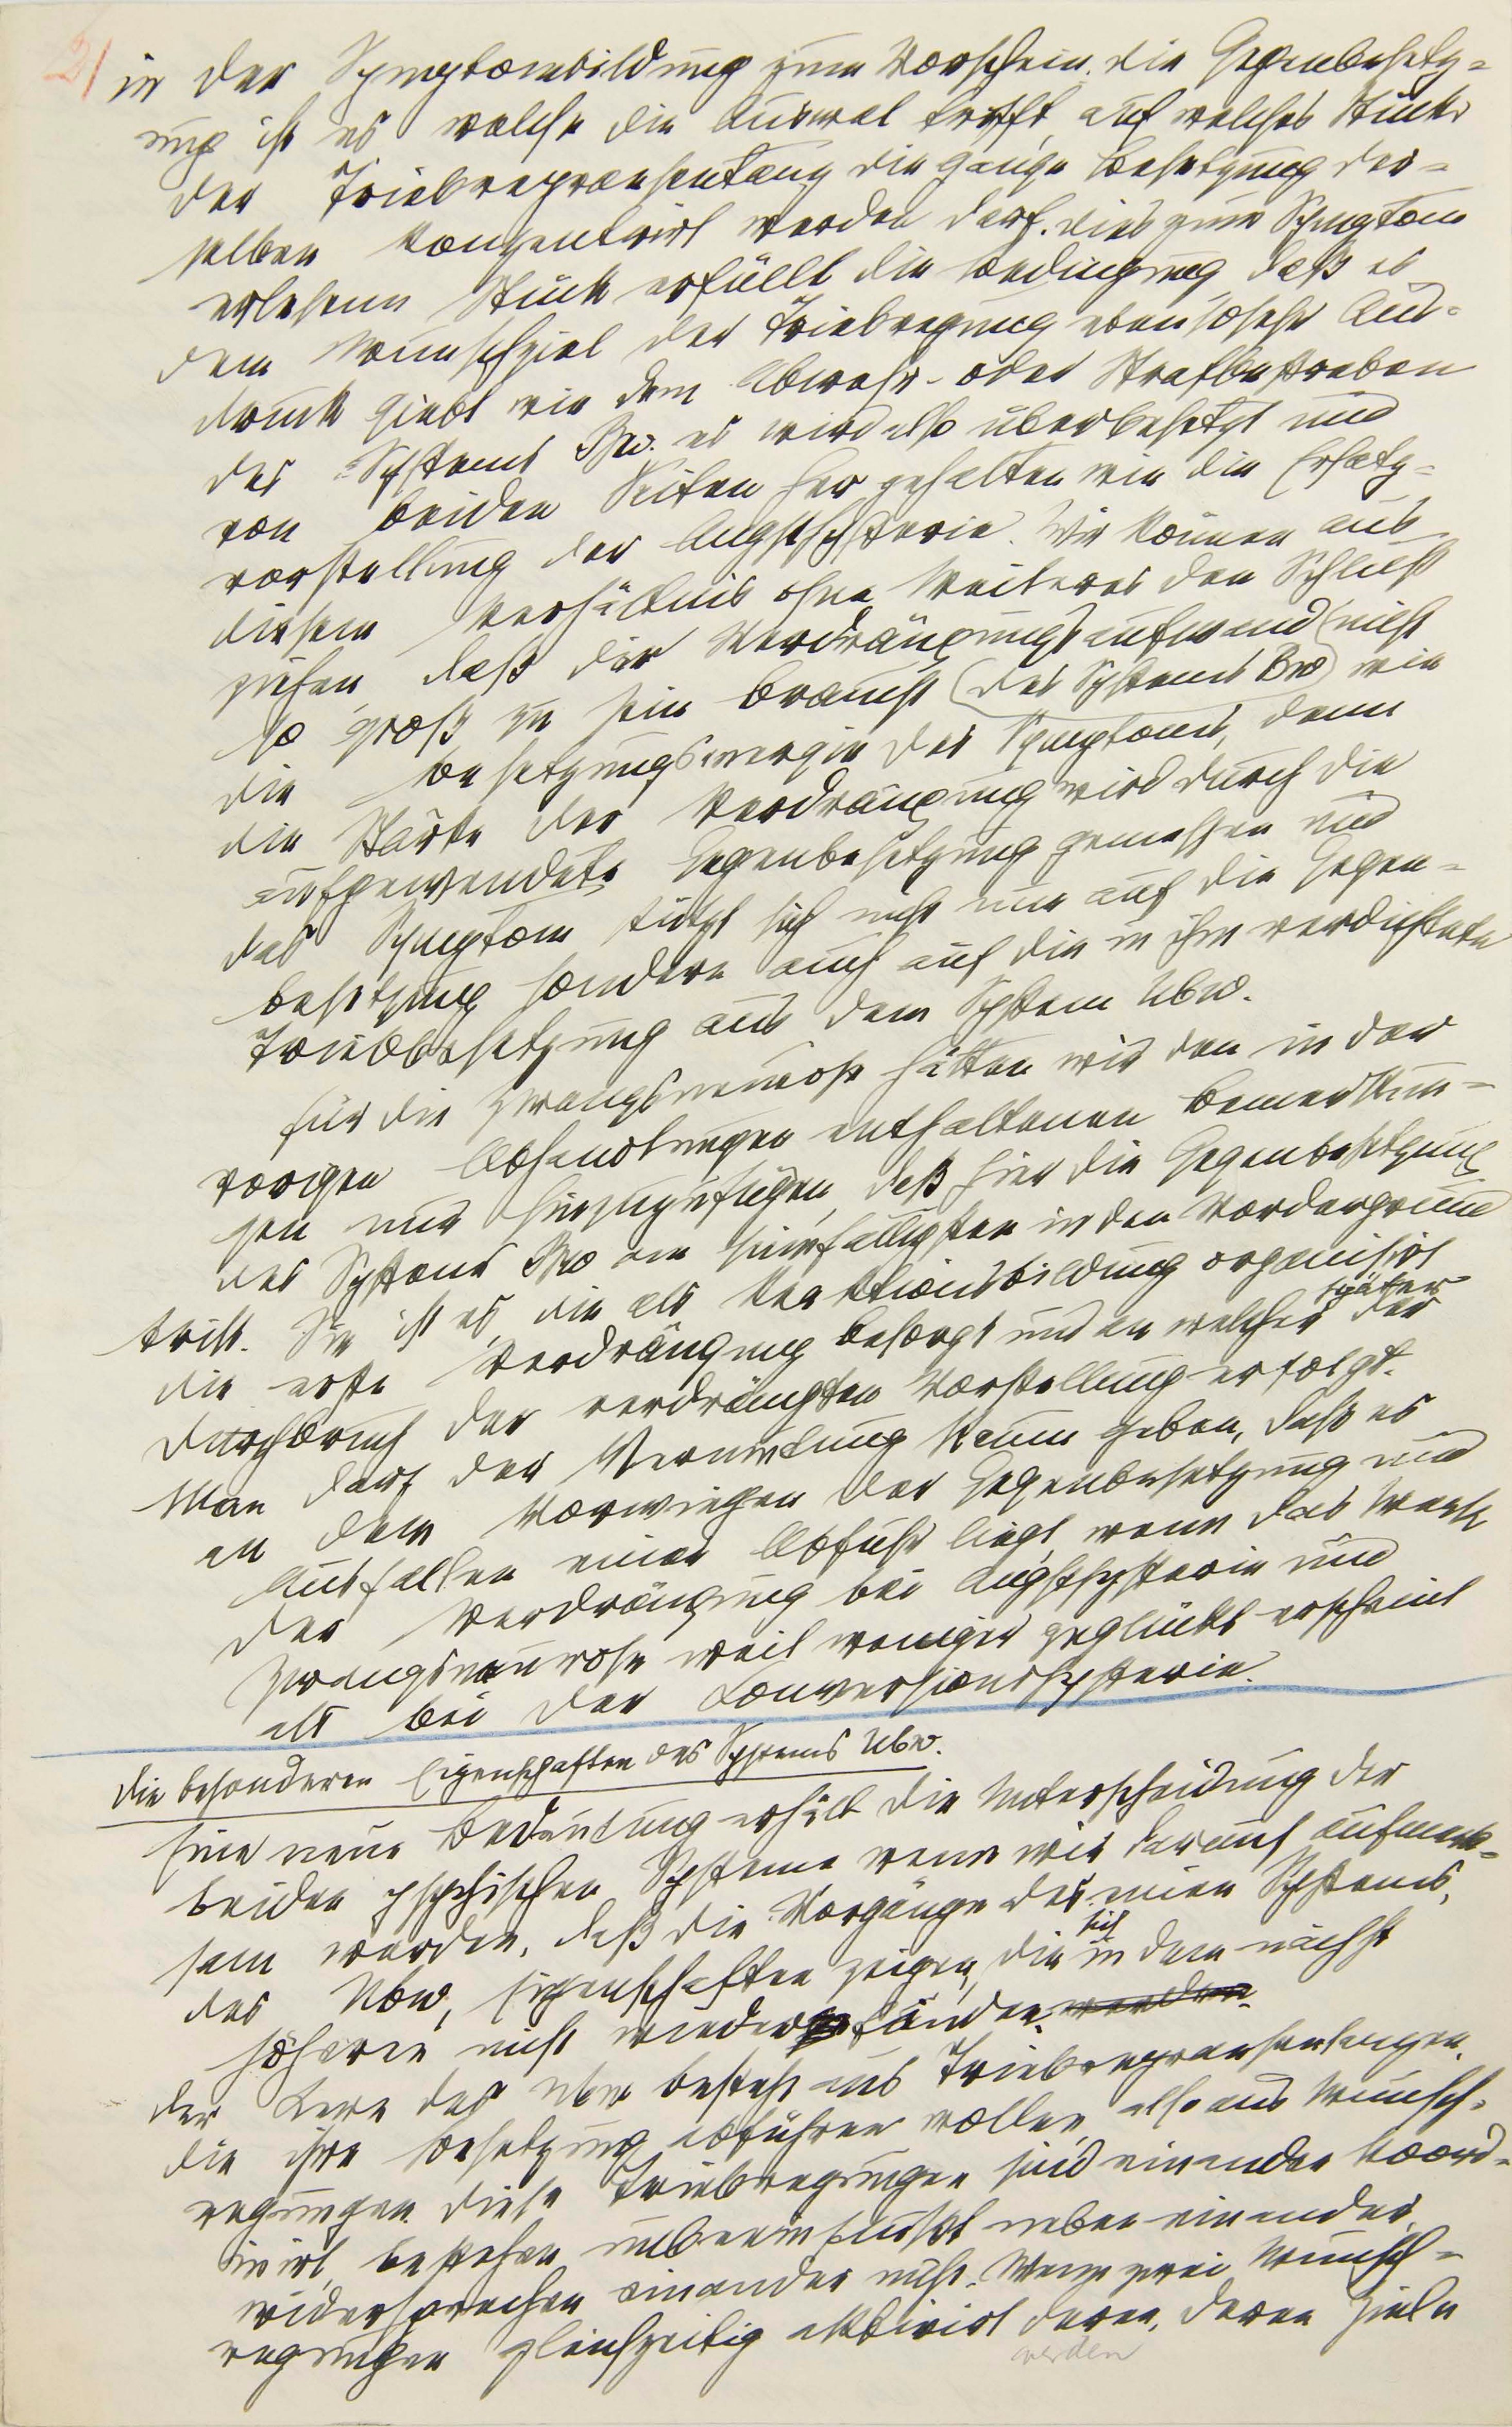 21
in der Symptombildung zum Vorschein. die Gegenbesetz=
ung ist es welche die Auswal trifft, auf welches Stück
der Triebrepraesentanz die ganze Besetzung der=
selben konzentrirt werden darf. dies zum Symptom
erlesene Stück erfüllt die Bedingung, daß es
dem Wunschziel der Triebregung ebensosehr Aus=
druck giebt wie dem Abwehr- oder Strafbestreben
des Systems Bw. es wird also überbesetzt und
von beiden Seiten her gehalten wie die Ersatz=
vorstellung der Angsthysterie. Wir können aus
diesem Verhältnis ohne Weiteres den Schluß
ziehen, daß der Verdrängungsaufwand nicht
so groß zu sein braucht (des Systems Bw) wie
die Besetzungsenergie des Symptoms, denn
die Stärke der Verdrängung wird durch die
aufgewendete Gegenbesetzung gemessen und
das Symptom stützt sich nicht nur auf die Gegen=
besetzung sondern auch auf die in ihm verdichtete
Triebbesetzung aus dem System Ubw.
Für die Zwangsneurose hätten wir den in der
vorigen Abhandlungen enthaltenen Bemerkun=
gen nur hinzuzufügen, daß hier die Gegenbesetzung
des Systems Bw am sinnfälligsten in den Vordergrund
tritt. Sie ist es, die als Reaktionsbildung organisirt
die erste Verdrängung besorgt und an welcher später der
Durchbruch der verdrängten Vorstellung erfolgt.
Man darf der Vermutung Raum geben, daß es
an dem Vorwiegen der Gegenbesetzung und
Ausfallen einer Abfuhr liegt, wenn das Werk
der Verdrängung bei Angsthysterie und
Zwangsneurose weit weniger geglückt erscheint
als bei der Conversionshysterie.
Die besonderen Eigenschaften des Systems Ubw.
Eine neue Bedeutung erhält die Unterscheidung der
beiden psychischen Systeme wenn wir darauf aufmerk=
sam werden, daß die Vorgänge des einen Systems,
des Ubw, Eigenschaften zeigen, die sich in dem nächst
höheren nicht wieder finden werden.
Der Kern des Ubw besteht aus Triebrepraesentanzen,
die ihre Besetzung abführen wollen, also aus Wunsch=
regungen. diese Triebregungen sind einander koord=
inirt, bestehen unbeeinflußt neben einander,
widersprechen einander nicht. Wenn zwei Wunsch=
regungen gleichzeitig aktivirt deren, deren Ziele
werden